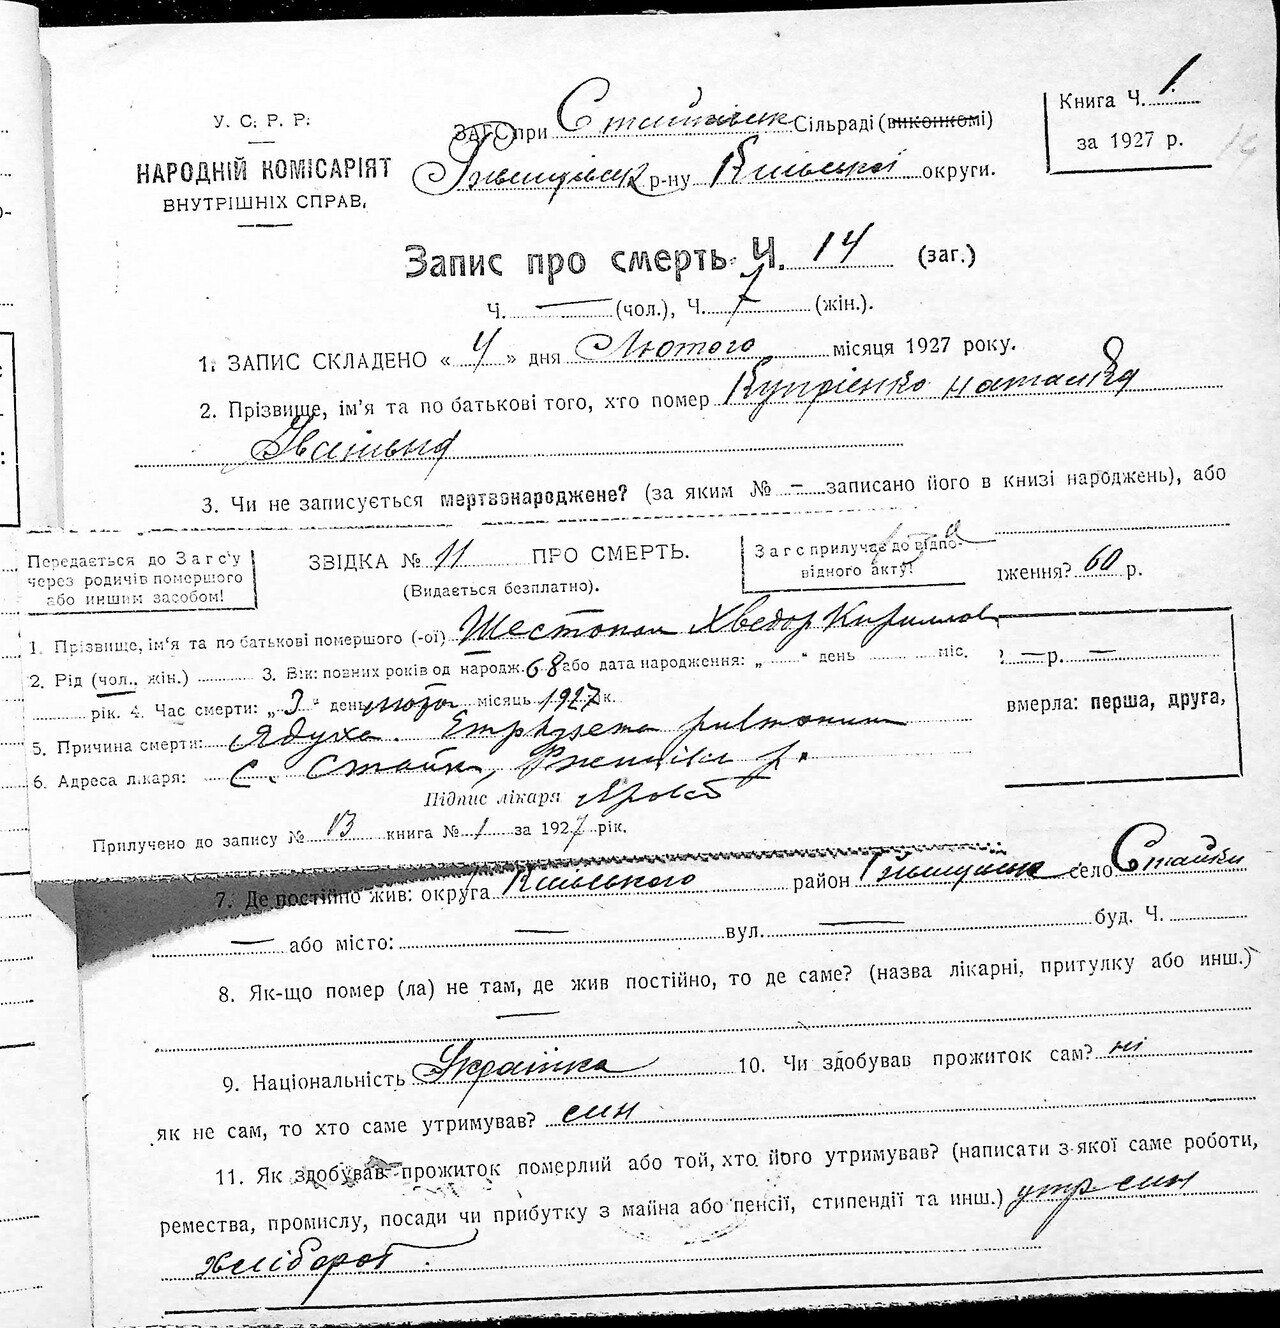 У. С. Р. Р.
НАРОДНІЙ КОМІСАРІЯТ
ВНУТРІШНІХ СПРАВ,
ЗАГС при Стайківськ Сільраді (виконкомі)
р-ну Київської округи.
Книга Ч. 1
за 1927 р.
14
Запис про смерть Ч. 14 (заг.)
Ч. — (чол.), Ч. 7 (жін.).
1. ЗАПИС СКЛАДЕНО « 4 » дня Лютого місяця 1927 року.
2. Прізвище, ім'я та по батькові того, хто помер Купрієнко Наталка
Іванівна
3. Чи не записується мертвонароджене? (за яким № — записано його в книзі народжень), або
Передається до Загс'у
через родичів помершого
або иншим засобом!
ЗВІДКА № 11 ПРО СМЕРТЬ.
(Видається безплатно).
Загс прилучає до відпо-
відного акту!
дження? 60 р.
1. Прізвище, ім'я та по батькові помершого (-ої) Шестопал Хведор Кирилов
2. Рід (чол., жін.) 3. Вік: повних років од народж. 68 або дата народження: „ “ день міс.
рік. 4. Час смерти: „ 3 “ день лютого місяць 1927 рік.
5. Причина смерти: Ядуха. Emphysema pulmonum
6. Адреса лікаря: с. Стайки, р.
Підпис лікаря
Прилучено до запису № 13 книга № 1 за 1927 рік.
? — р. —
вмерла: перша, друга,
7. Де постійно жив: округа Київського район село Стайки
— або місто: — вул. — буд. Ч.
8. Як-що помер (ла) не там, де жив постійно, то де саме? (назва лікарні, притулку або инш.)
—
9. Національність Українка 10. Чи здобував прожиток сам? ні
як не сам, то хто саме утримував? син
11. Як здобував прожиток померлий або той, хто його утримував? (написати з якої саме роботи,
ремества, промислу, посади чи прибутку з майна або пенсії, стипендії та инш.) утр син
хлібороб.